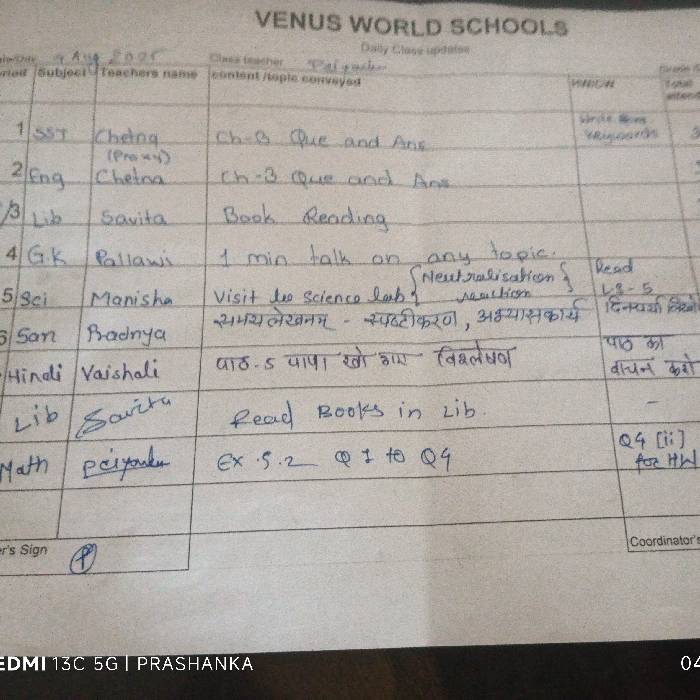 VENUS WORLD SCHOOLS
Daily Class updates
Aug 2025 Class teacher Priyanka
Subject Teachers name content /topic conveyed HW/CW Total
1 SST Chetna Ch-3 Que and Ans Write keywords
(Proxy)
2 Eng Chetna Ch-3 Que and Ans
3 Lib Savita Book Reading
4 G.K Pallawi 1 min talk on any topic.
5 Sci Manisha Visit to science lab { Neutralisation reaction } Read L-5
San Pradnya समयलेखनम् - स्पष्टीकरण, अभ्यासकार्य दिनचर्या लिखो
Hindi Vaishali पाठ-5 पापा खो गए विश्लेषण पाठ का वाचन करो
Lib Savita Read Books in Lib. -
Math Priyanka Ex.5.2 Q1 to Q4 Q4 [ii] for HW
r's Sign P Coordinator's
REDMI 13C 5G | PRASHANKA 04